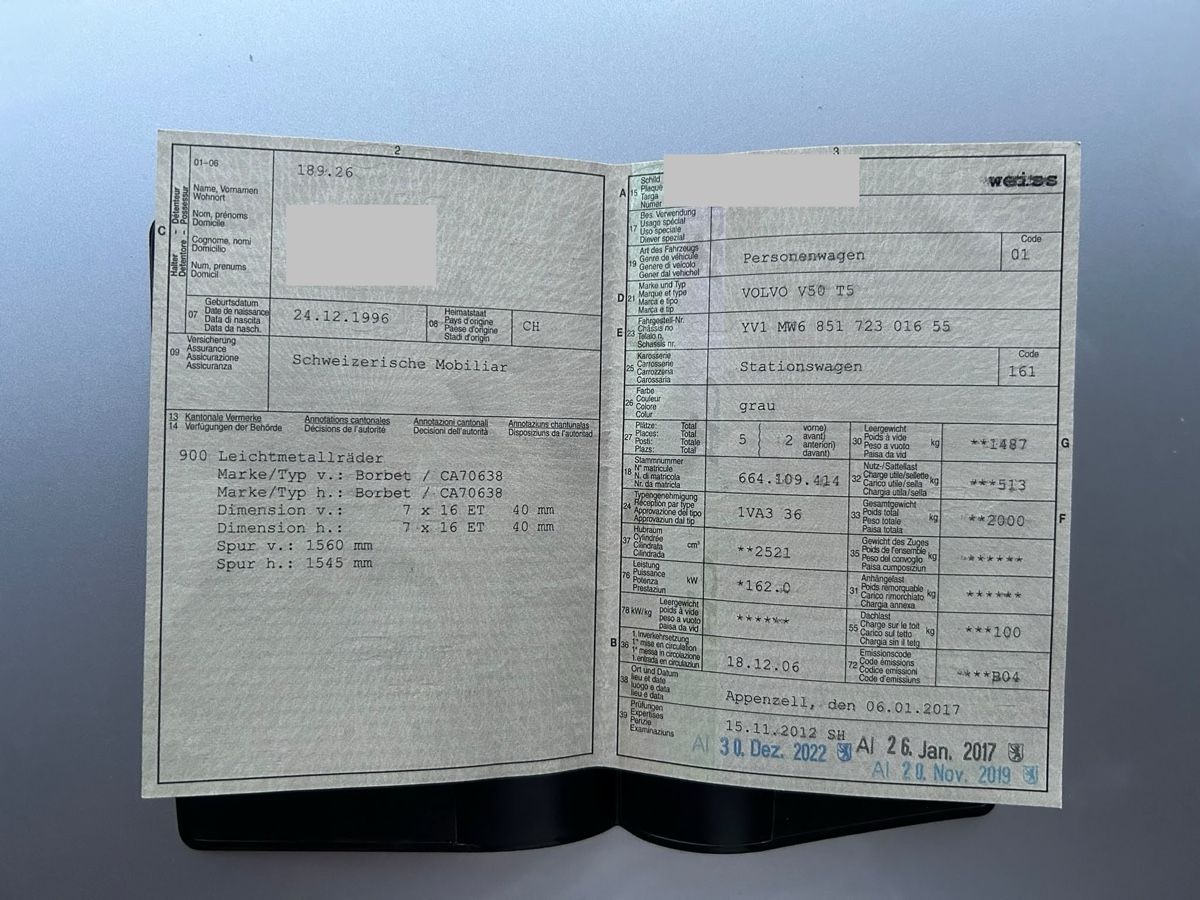 2
01-06
189.26
C
Halter – Détenteur
Detentore – Possessur
Name, Vornamen
Wohnort
Nom, prénoms
Domicile
Cognome, nomi
Domicilio
Num, prenums
Domicil
07
Geburtsdatum
Date de naissance
Data di nascita
Data da nasch.
24.12.1996
08
Heimatstaat
Pays d'origine
Paese d'origine
Stadi d'origin
CH
09
Versicherung
Assurance
Assicurazione
Assicuranza
Schweizerische Mobiliar
13 Kantonale Vermerke Annotations cantonales Annotazioni cantonali Annotaziuns chantunalas
14 Verfügungen der Behörde Décisions de l'autorité Decisioni dell'autorità Disposiziuns da l'autoritad
900 Leichtmetallräder
Marke/Typ v.: Borbet / CA70638
Marke/Typ h.: Borbet / CA70638
Dimension v.: 7 x 16 ET 40 mm
Dimension h.: 7 x 16 ET 40 mm
Spur v.: 1560 mm
Spur h.: 1545 mm
3
A 15
Schild
Plaque
Targa
Numer
weiss
17
Bes. Verwendung
Usage spécial
Uso speciale
Diever spezial
19
Art des Fahrzeugs
Genre de véhicule
Genere di veicolo
Gener dal vehichel
Personenwagen
Code
01
D 21
Marke und Typ
Marque et type
Marca e tipo
Marca e tip
VOLVO V50 T5
E 23
Fahrgestell-Nr.
Châssis no
Telaio n.
Schassis nr.
YV1 MW6 851 723 016 55
25
Karosserie
Carrosserie
Carrozzeria
Carossaria
Stationswagen
Code
161
26
Farbe
Couleur
Colore
Colur
grau
27
Plätze: Total
Places: Total
Posti: Totale
Plazs: Total
5 { 2
vorne)
avant)
anteriori)
davant)
30
Leergewicht
Poids à vide
Peso a vuoto
Paisa da vid
kg
**1487
G
18
Stammnummer
N° matricule
N. di matricola
Nr. da matricla
664.109.414
32
Nutz-/Sattellast
Charge utile/sellette
Carico utile/sella
Chargia utila/sella
kg
***513
24
Typengenehmigung
Réception par type
Approvazione del tipo
Approvaziun dal tip
1VA3 36
33
Gesamtgewicht
Poids total
Peso totale
Paisa totala
kg
**2000
F
37
Hubraum
Cylindrée
Cilindrata
Cilindrada
cm³
**2521
35
Gewicht des Zuges
Poids de l'ensemble
Peso del convoglio
Paisa cumposiziun
kg
******
76
Leistung
Puissance
Potenza
Prestaziun
kW
*162.0
31
Anhängelast
Poids remorquable
Carico rimorchiato
Chargia annexa
kg
******
78 kW/kg
Leergewicht
poids à vide
peso a vuoto
paisa da vid
******
55
Dachlast
Charge sur le toit
Carico sul tetto
Chargia sin il tetg
kg
***100
B 36
1. Inverkehrsetzung
1re mise en circulation
1a messa in circolazione
1. entrada en circulaziun
18.12.06
72
Emissionscode
Code émissions
Codice emissioni
Code d'emissiuns
***B04
38
Ort und Datum
lieu et date
luogo e data
lieu e data
Appenzell, den 06.01.2017
39
Prüfungen
Expertises
Perizie
Examinaziuns
15.11.2012 SH
AI 30. Dez. 2022 AI 26. Jan. 2017
AI 20. Nov. 2019